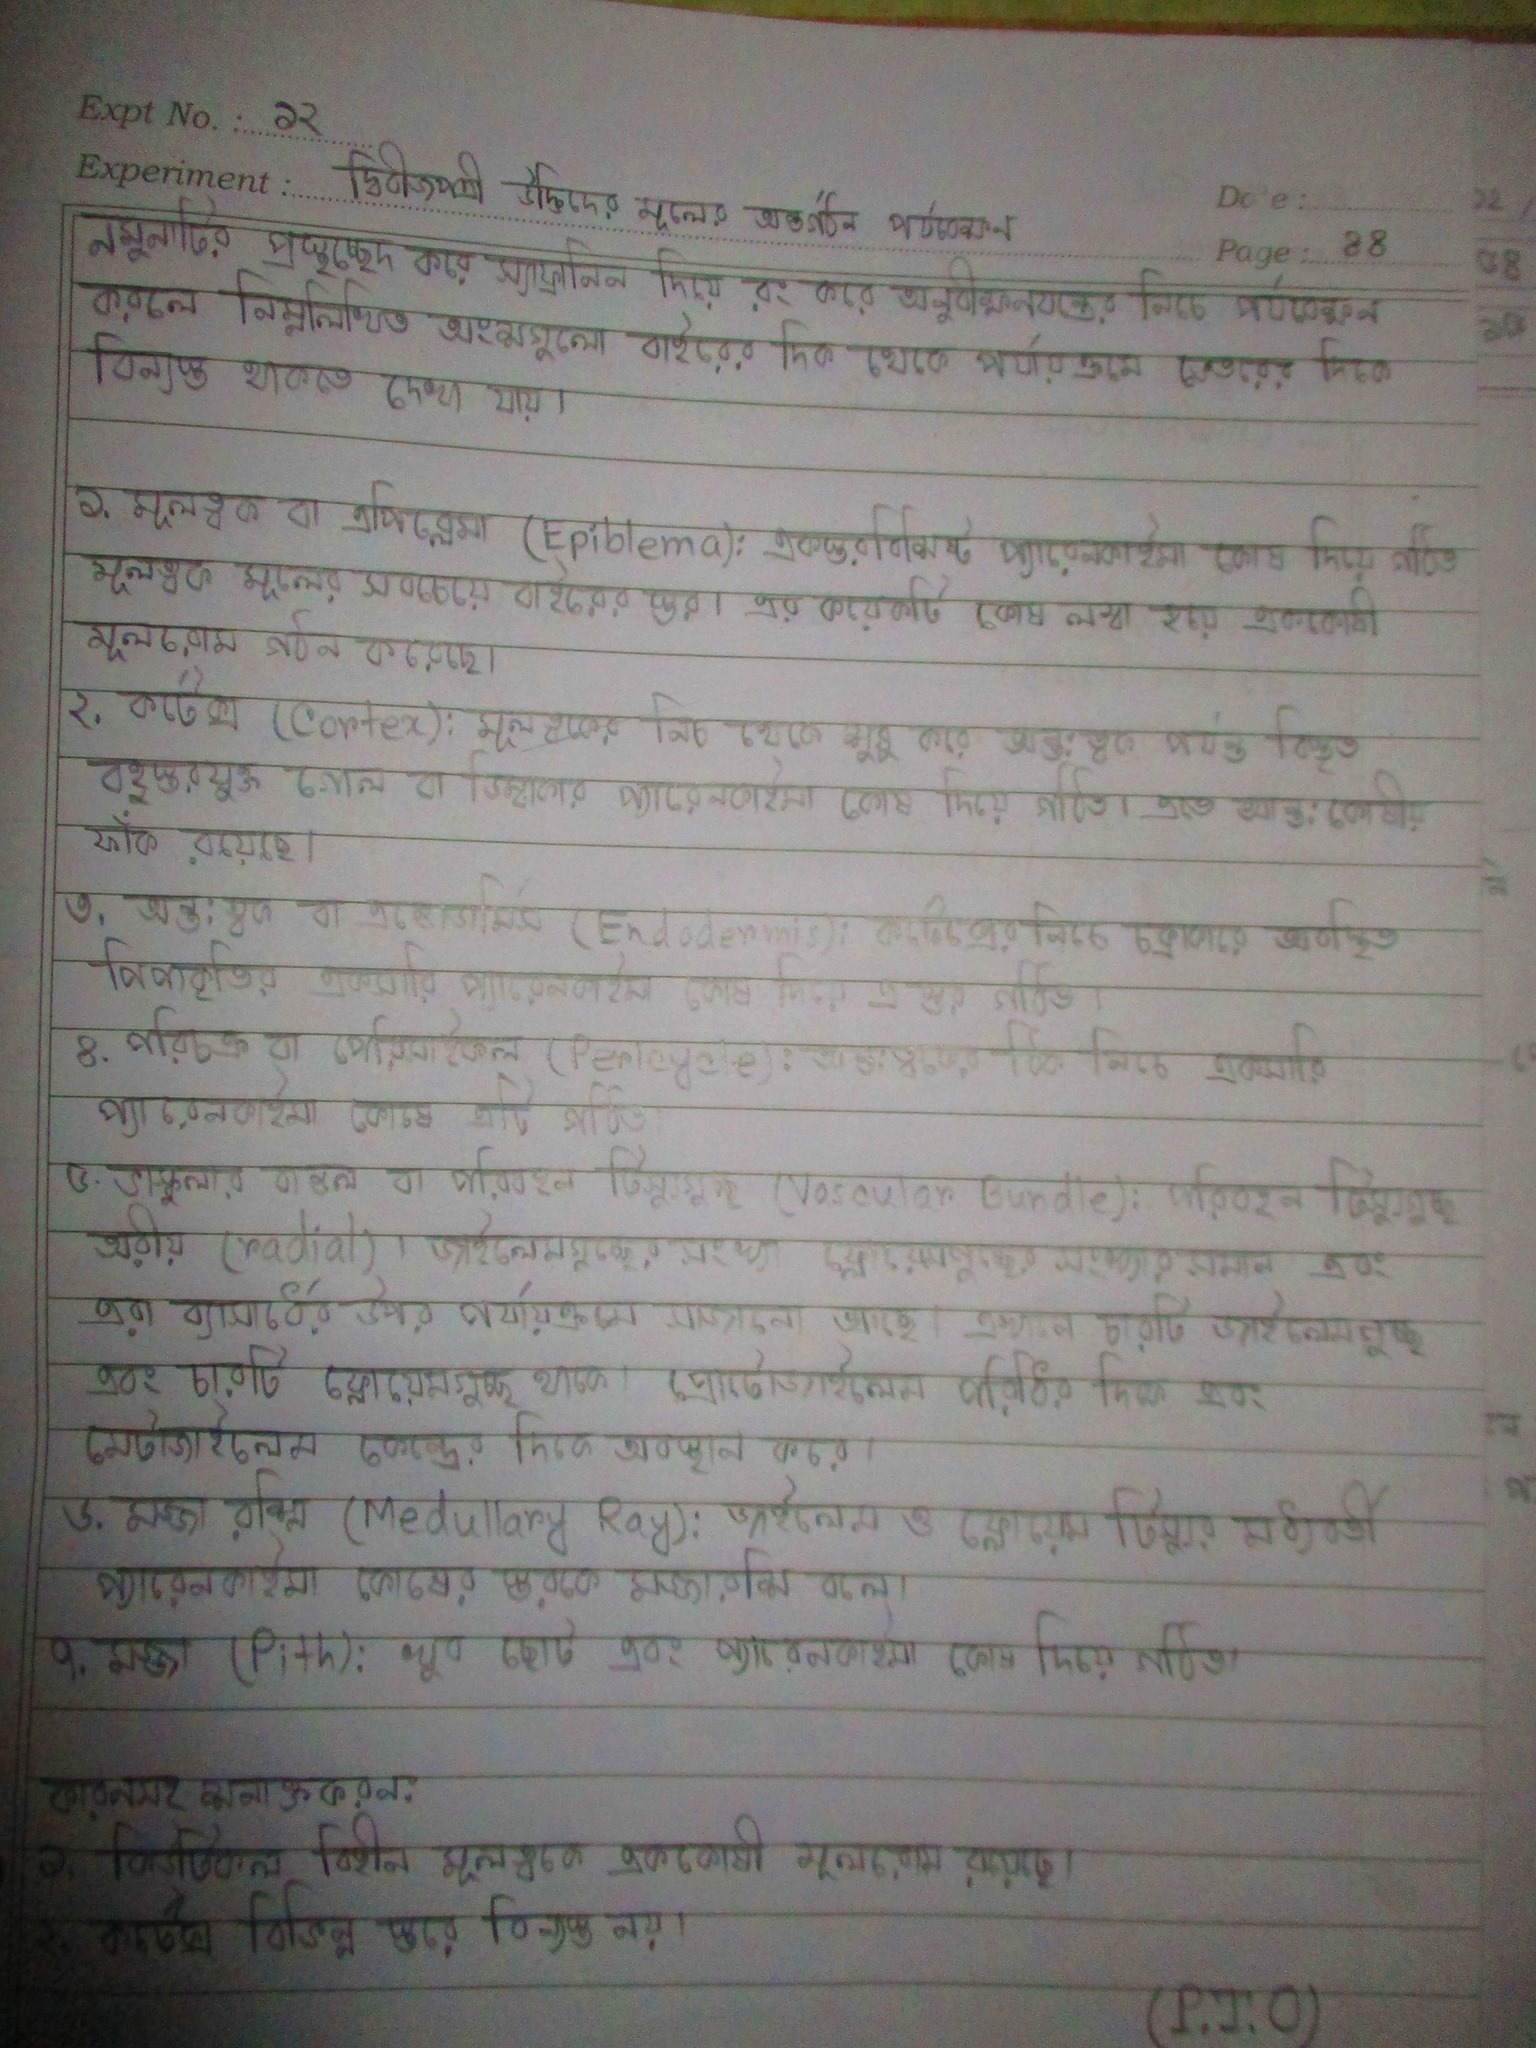 Expt No. : ১২
Experiment : দ্বিবীজপত্রী উদ্ভিদের মূলের অন্তর্গঠন পর্যবেক্ষন
Date :
Page : 44
নমুনাটির প্রস্থচ্ছেদ করে স্যাফ্রানিন দিয়ে রং করে অনুবীক্ষনযন্ত্রের নিচে পর্যবেক্ষন
করলে নিম্নলিখিত অংশগুলো বাইরের দিক থেকে পর্যায়ক্রমে ভেতরের দিকে
বিন্যস্ত থাকতে দেখা যায়।
১. মূলত্বক বা এপিব্লেমা (Epiblema): একস্তরবিশিষ্ট প্যারেনকাইমা কোষ দিয়ে গঠিত
মূলত্বক মূলের সবচেয়ে বাইরের স্তর। এর কয়েকটি কোষ লম্বা হয়ে এককোষী
মূলরোম গঠন করেছে।
২. কর্টেক্স (Cortex): মূলত্বকের নিচ থেকে শুরু করে অন্তঃত্বক পর্যন্ত বিস্তৃত
বহুস্তরযুক্ত গোল বা ডিম্বাকার প্যারেনকাইমা কোষ দিয়ে গঠিত। এতে আন্তঃকোষীয়
ফাঁক রয়েছে।
৩. অন্তঃত্বক বা এন্ডোডার্মিস (Endodermis): কর্টেক্সের নিচে চক্রাকারে অবস্থিত
পিপাকৃতির একসারি প্যারেনকাইমা কোষ দিয়ে এ স্তর গঠিত।
৪. পরিচক্র বা পেরিসাইকল (Pericycle): অন্তঃত্বকের ঠিক নিচে একসারি
প্যারেনকাইমা কোষে এটি গঠিত।
৫. ভাস্কুলার বান্ডল বা পরিবহন টিস্যুগুচ্ছ (Vascular Bundle): পরিবহন টিস্যুগুচ্ছ
অরীয় (radial)। জাইলেমগুচ্ছের সংখ্যা ফ্লোয়েমগুচ্ছের সংখ্যার সমান এবং
এরা ব্যাসার্ধের উপর পর্যায়ক্রমে সাজানো আছে। এখানে চারটি জাইলেমগুচ্ছ
এবং চারটি ফ্লোয়েমগুচ্ছ থাকে। প্রোটোজাইলেম পরিধির দিকে এবং
মেটাজাইলেম কেন্দ্রের দিকে অবস্থান করে।
৬. মজ্জা রশ্মি (Medullary Ray): জাইলেম ও ফ্লোয়েম টিস্যুর মধ্যবর্তী
প্যারেনকাইমা কোষের স্তরকে মজ্জারশ্মি বলে।
৭. মজ্জা (Pith): খুব ছোট এবং প্যারেনকাইমা কোষ দিয়ে গঠিত।
কারনসহ শনাক্তকরন:
১. কিউটিকল বিহীন মূলত্বকে এককোষী মূলরোম রয়েছে।
২. কর্টেক্স বিভিন্ন স্তরে বিন্যস্ত নয়।
(P.T.O)